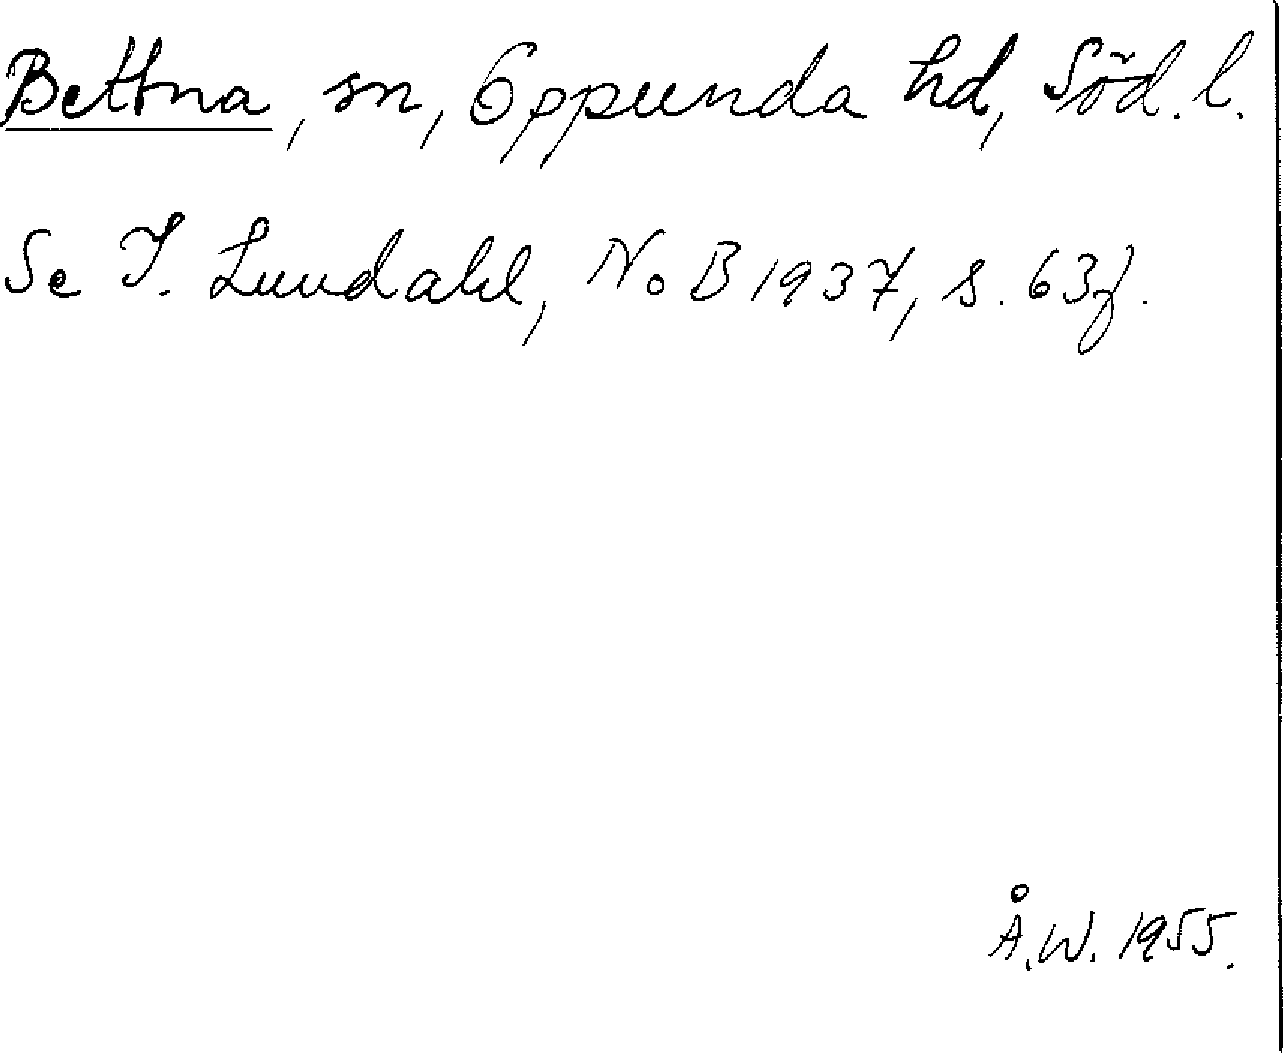 Bettna, sn, Oppunda hd, Söd. l.
Se I. Lundahl, NoB 1937, s. 63f.
Å.W. 1955.